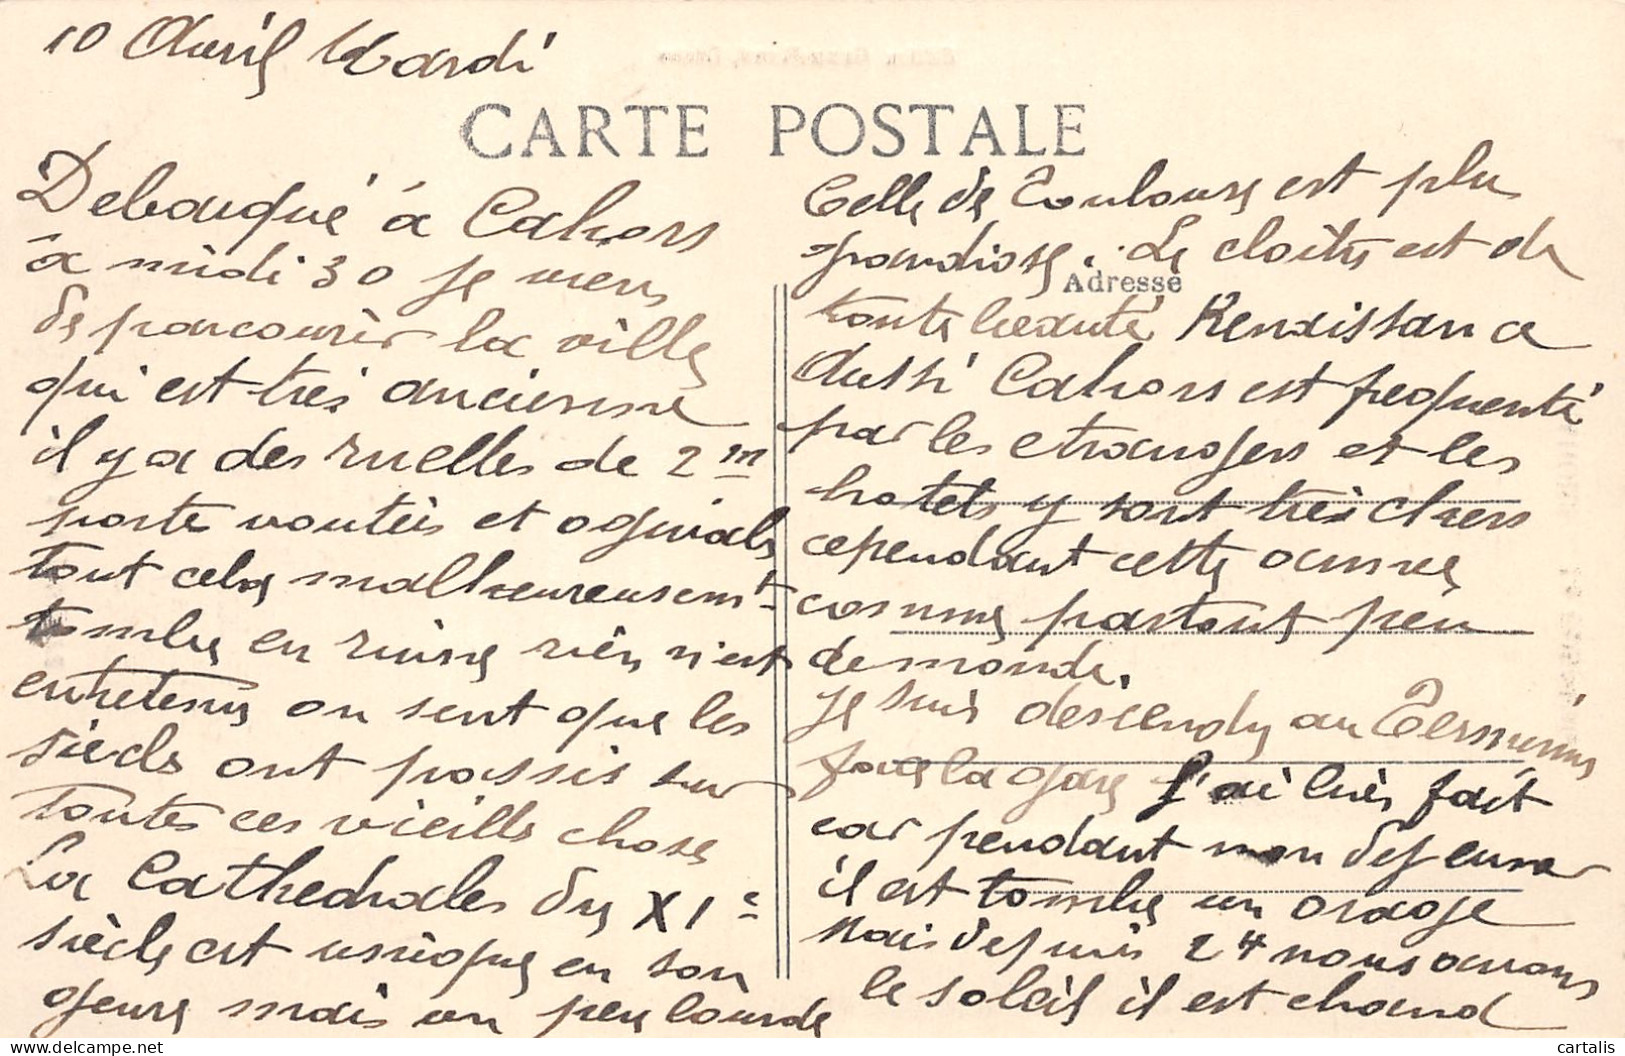 10 Avril Mardi
CARTE POSTALE
Debarqué à Cahors
à midi 30 je viens
de parcourir la ville
qui est très ancienne
il y a des ruelles de 2 m
porte voutées et ogivals
tout cela malheureusemt
tombe en ruine rien n'est
entretenus on sent que les
siècls ont passés sur
toutes ces vieills chose
La Cathedrales du XIe
siècle est unique en son
genre mais un peu lourde
Celle de Toulouse est plu
grandiose. Le cloitre est de
Adresse
toute beauté Renaissance
Aussi Cahors est frequenté
par les etrangers et les
hotels y sont très chers
cependant cette année
comme partout peu
de monde.
je suis descendu au Terminus
face la gare j'ai bien fait
car pendant mon dejeuner
il est tombé un orage
Mais depuis 2 h nous avons
le soleil il est chaud
cartalis